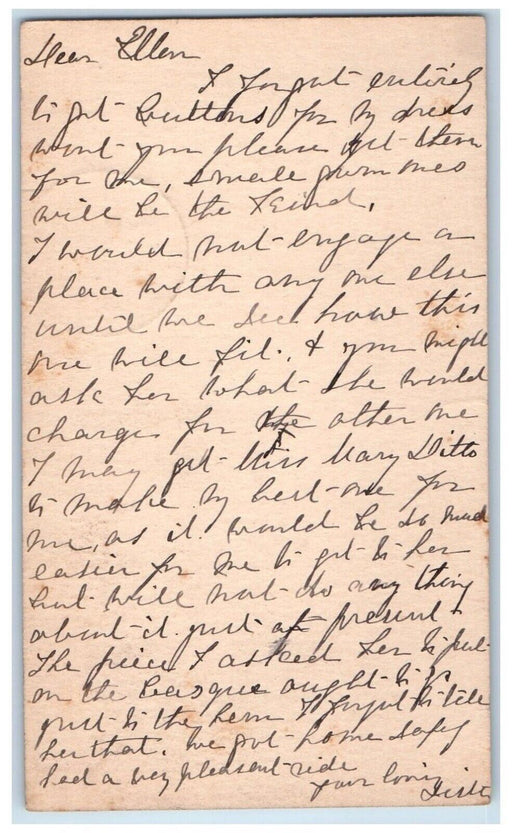 Dear Ellen
I forgot entirely
to get buttons for my dress
wont you please get them
for me, small gown ones
will be the kind,
I would not engage a
place with any one else
until we see how this
one will fit., & you might
ask her what she would
charge for the other one
I may get Miss Mary Ditto
to make my best one for
me, as it would be so much
easier for me to get to her
but will not do any thing
about it just at present
The piece I asked her to put
on the basque ought to be
just to the hem I forgot to tell
her that. We got home safely
had a very pleasant ride
your loving
Sister